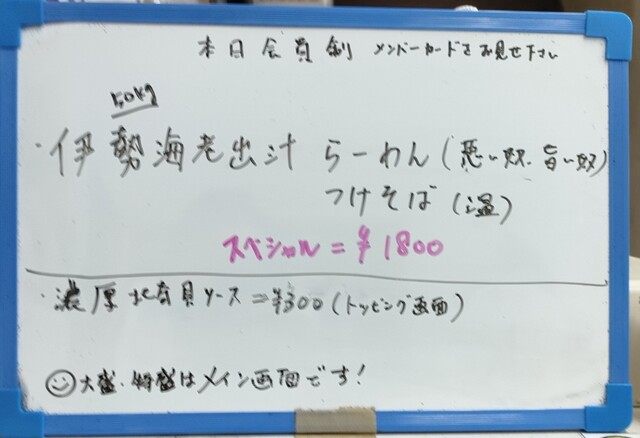 本日会員制 メンバーカードをお見せ下さい
50kg
・伊勢海老出汁 らーめん(悪い奴、旨い奴)
つけそば(温)
スペシャル=¥1800
・濃厚北寄貝ソース=¥300(トッピング画面)
大盛・特盛はメイン画面です!